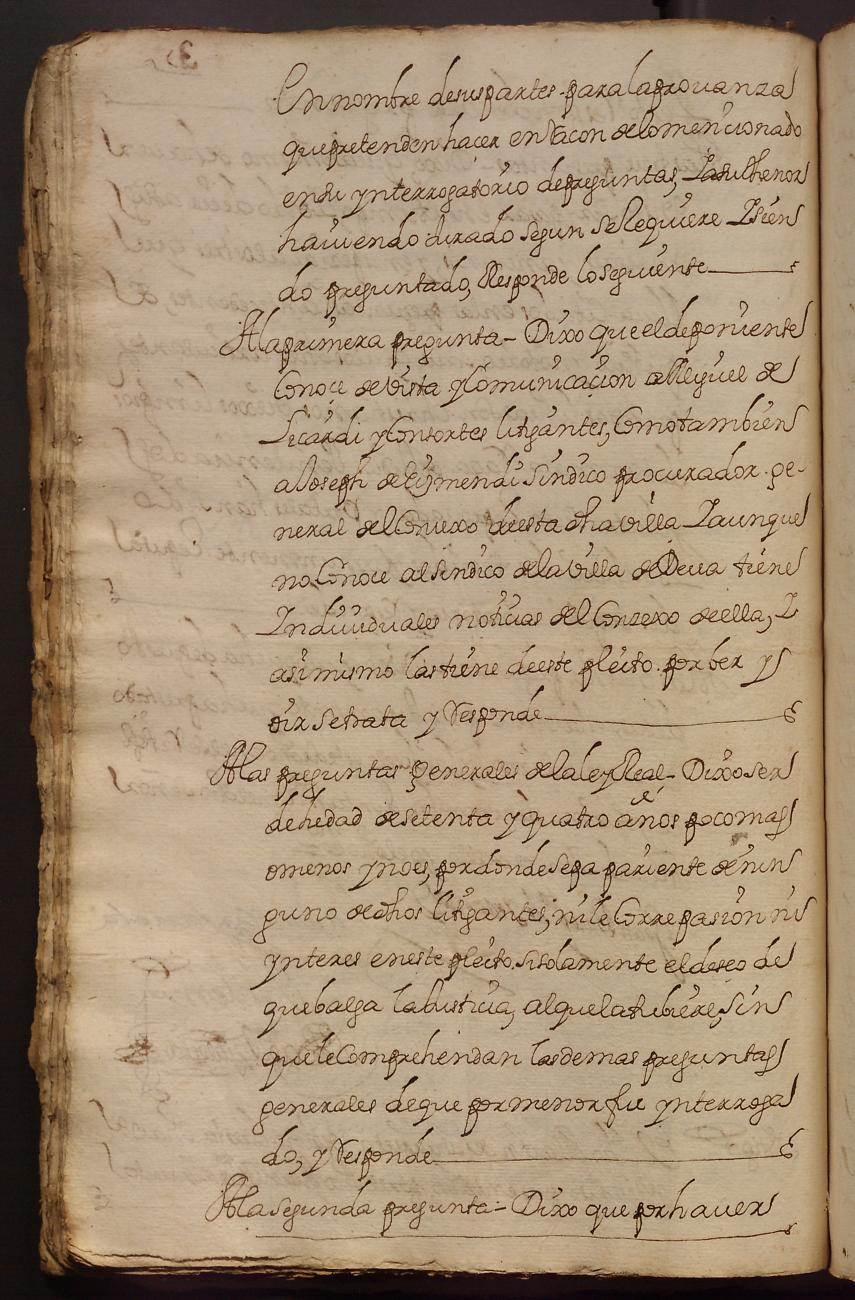 En nombre de sus partes para la provanza
que pretenden hacer en Racon de lo mencionado
en su ynterrogatorio de preguntas, I a su thenor
haviendo Jurado segun se Requiere I sien
do preguntado, Responde lo seguiente
A la primera pregunta - Dixo que el deponiente
Conoce de vista y Comunicacion a Miguel de
Licardi y Consortes litigantes, Como tambien
a Joseph de Eymendi Sindico procurador ge-
neral del Conzexo de esta dha villa I aunque
no Conoce al Sindico de la villa de Deva tiene
Individuales noticias del Conzexo de ella, I
asimismo las tiene de este pleito por ber y
oir se trata y Responde
A las preguntas generales de la ley Real - Dixo ser
de hedad de setenta y quatro años poco mas
o menos y no es, por donde sepa pariente de nin
guno de dhos litigantes, ni le Corre pasion ni
ynteres en este pleito, si solamente el deseo de
que balga la Justicia, al que la tubiere, sin
que le Comprehendan las demas preguntas
generales de que por menor fue ynterroga
do, y Responde
A la segunda pregunta - Dixo que por haver